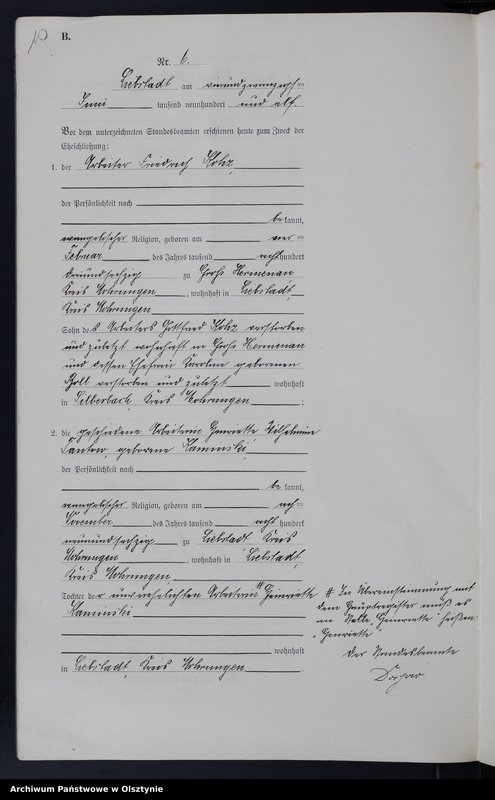 10
B.
Nr. 6.
Liebstadt am vierundzwanzigsten
Juni tausend neunhundert und elf.
Vor dem unterzeichneten Standesbeamten erschienen heute zum Zweck der
Eheschließung:
1. der Arbeiter Friedrich Kohz,
der Persönlichkeit nach
bekannt,
evangelischer Religion, geboren am vierten
Februar des Jahres tausend achthundert
dreiundsechzig zu Groß Hermenau
Kreis Mohrungen, wohnhaft in Liebstadt,
Kreis Mohrungen
Sohn des Arbeiters Gottfried Kohz verstorben
und zuletzt wohnhaft in Groß Hermenau
und dessen Ehefrau Karoline geborenen
Boll verstorben und zuletzt wohnhaft
in Silberbach, Kreis Mohrungen;
2. die geschiedene Arbeiterin Henriette Wilhelmine
geborene Kaminski,
der Persönlichkeit nach
bekannt,
evangelischer Religion, geboren am achten
November des Jahres tausend achthundert
neunundsechzig zu Liebstadt Kreis
Mohrungen, wohnhaft in Liebstadt,
Kreis Mohrungen,
Tochter der unverehelichten Arbeiterin # Henriette
Kaminski
wohnhaft
in Liebstadt, Kreis Mohrungen.
# In Übereinstimmung mit
dem Hauptregister muß es
an Stelle "Henriette" heißen:
"Henriette"
Der Standesbeamte
Archiwum Państwowe w Olsztynie